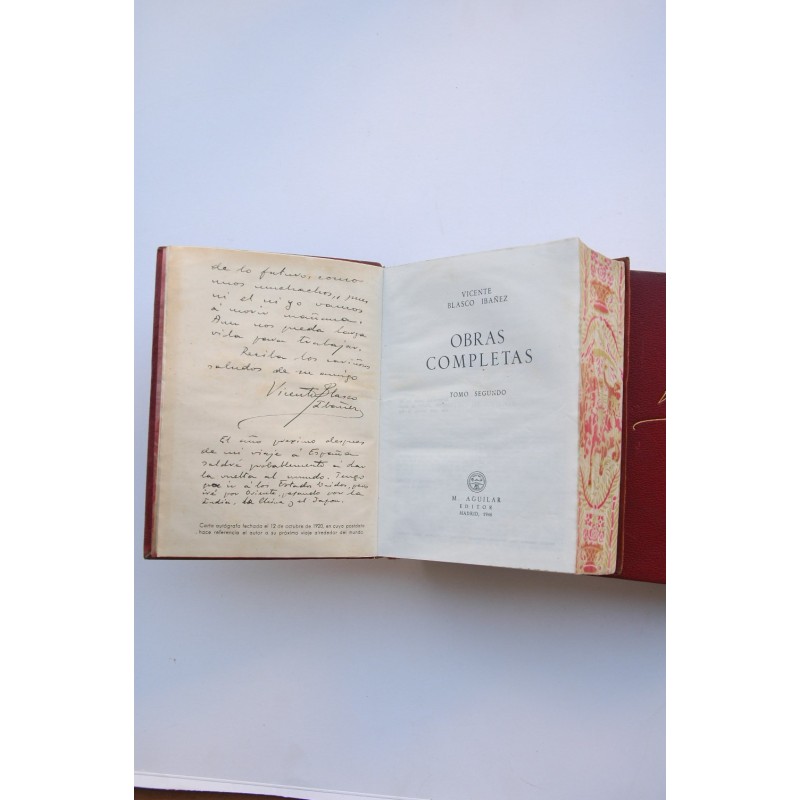 de lo futuro, como
unos muchachos, pues
ni el ni yo vamos
á morir mañana.
Aun nos queda larga
vida para trabajar.
Reciba los cariñosos
saludos de su amigo
Vicente Blasco
Ibañez
El año proximo despues
de mi viaje á España
saldré probablemente á dar
la vuelta al mundo. Tengo
que ir á los Estados Unidos, pero
iré por Oriente, pasando por la
India, la China y el Japon.
Carta autógrafa fechada el 12 de octubre de 1920, en cuya postdata
hace referencia el autor a su próximo viaje alrededor del mundo.
VICENTE
BLASCO IBAÑEZ
OBRAS
COMPLETAS
TOMO SEGUNDO
M. AGUILAR
EDITOR
MADRID, 1946